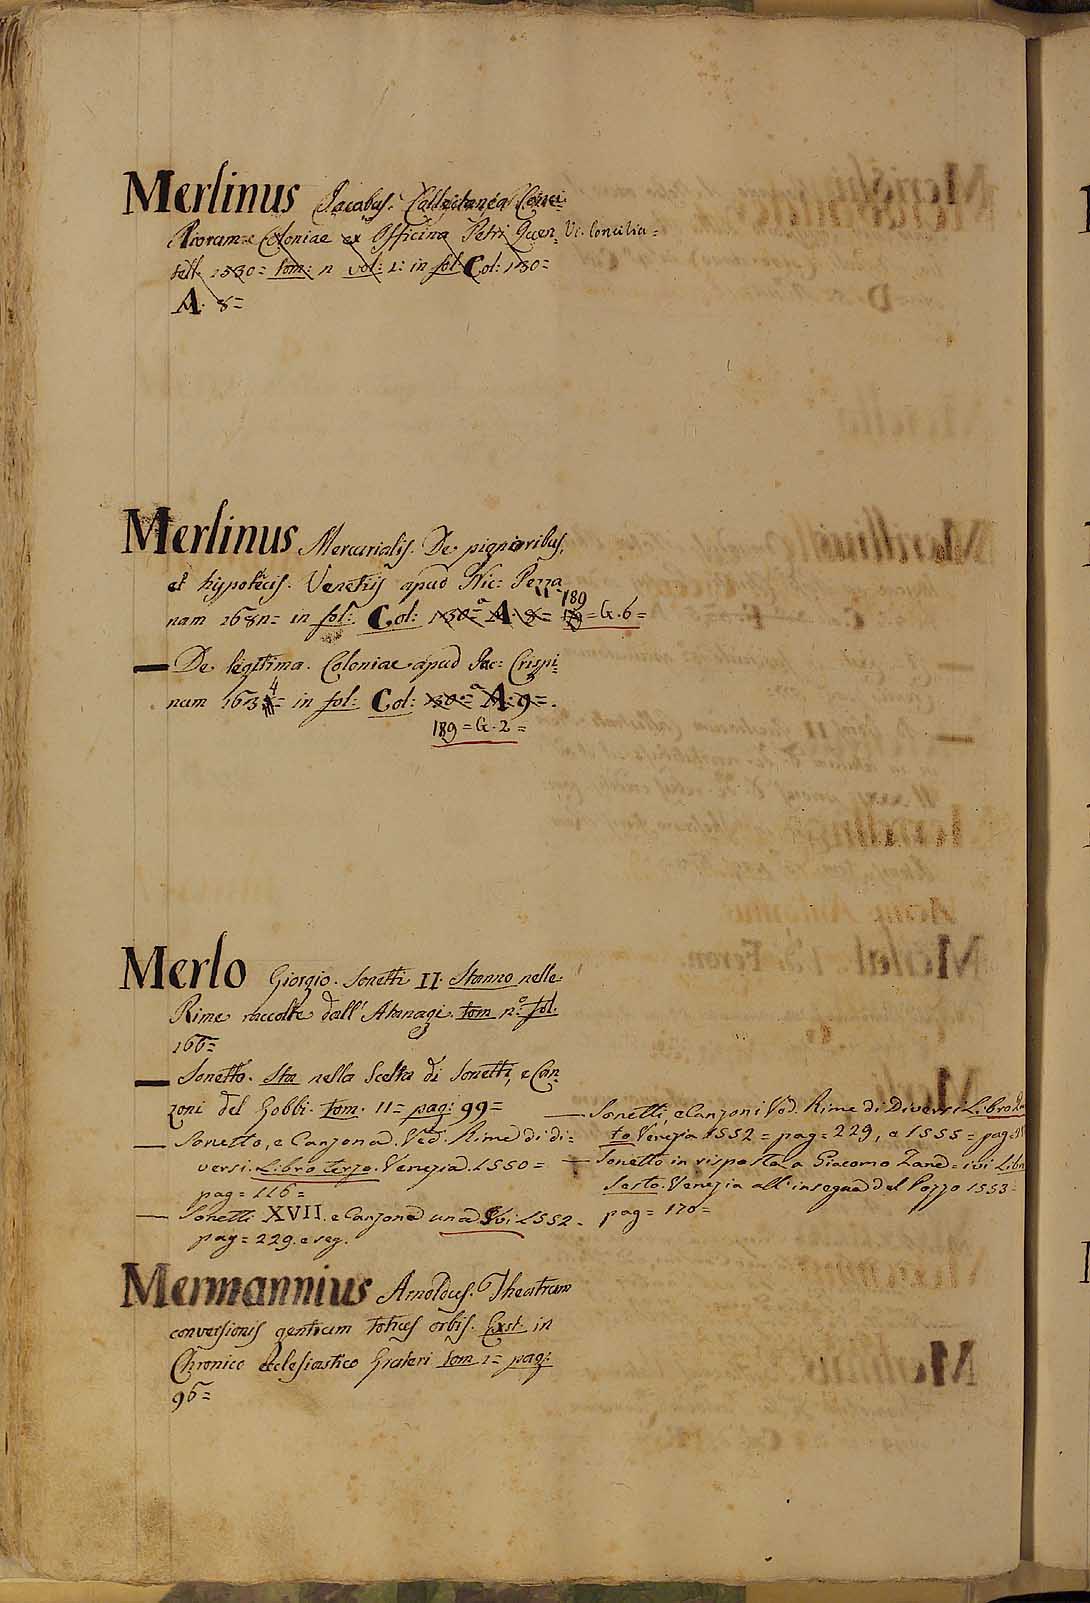 Merlinus Jacobus. Collectanea Conci-
liorum = Coloniae ex Officina Petri Quen= Vi. Concilia=
tell. 1530= tom: n vol: 1: in fol: Col: 130=
A. 8=
Merlinus Mercurialis. De pignoribus,
et hypotecis. Venetiis apud Nic: Pezza
189
nam 168n= in fol: Col: 130=a A. 8= = G. 6=
— De legitima. Coloniae apud Jac: Crispi-
4
nam 163 = in fol: Col: 130=a A. 9=.
189 = G. 2 =
Merlo Giorgio. Sonetti II. Stanno nelle
Rime raccolte dall' Atanagi. tom n:o fol.
166=
— Sonetto. Sta nella Scelta di Sonetti, e Can-
zoni del Gobbi. tom. 11= pag: 99=
— Sonetto, e Canzone. Ved. Rime di di=
versi. Libro terzo. Venezia. 1550=
pag= 116=
— Sonetti XVII. e Canzone una Ibi 1552.
pag= 229. e seg.
— Sonetti, e Canzoni Ved. Rime di Diversi Libro
to. Venezia 1552= pag= 229, e 1555= pag=
— Sonetto in risposta a Giacomo Zane= ivi Libro
Sesto. Venezia all'insegna del Pozzo 1553=
pag= 170=
Mermannius Arnoldus. Theatrum
conversionis gentium totius orbis. Exst. in
Chronico Ecclesiastico Grateri tom. 1= pag:
96=